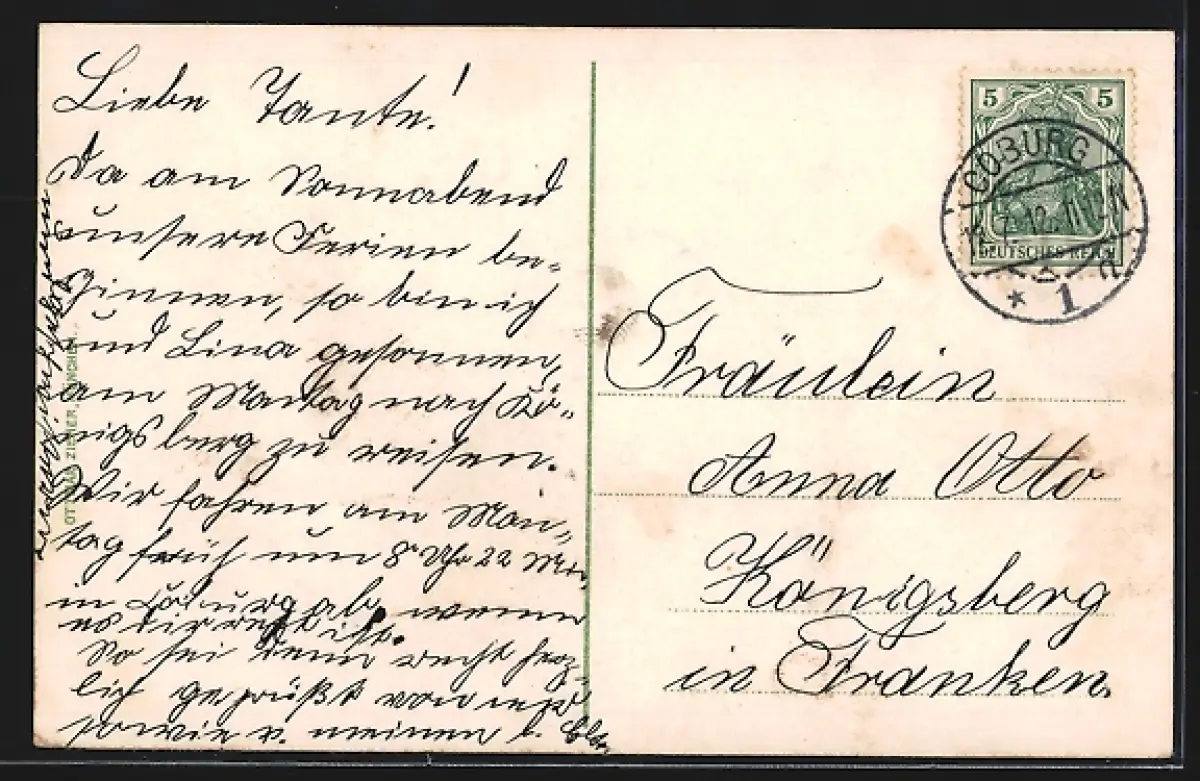 Liebe Tante!
Da am Sonnabend
unsere Ferien be-
ginnen, so bin ich
und Lina gesonnen,
am Montag nach Kö-
nigsberg zu reisen.
Wir fahren am Mon-
tag früh um 8 Uhr 22 Min
in Coburg ab, wenn
es dir recht ist.
So sei denn recht herz-
lich gegrüßt von
sowie v. meinen l.
OTTO ZIEHER, MÜNCHEN.
5 5
DEUTSCHES REICH
COBURG
7.12. 11-12 N
* 1 a
Fräulein
Anna Otto
Königsberg
in Franken.